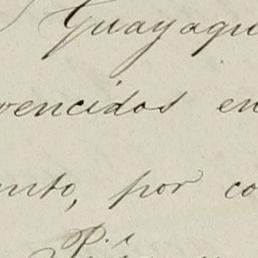 Guayaqu
vencidos en
nto, por co